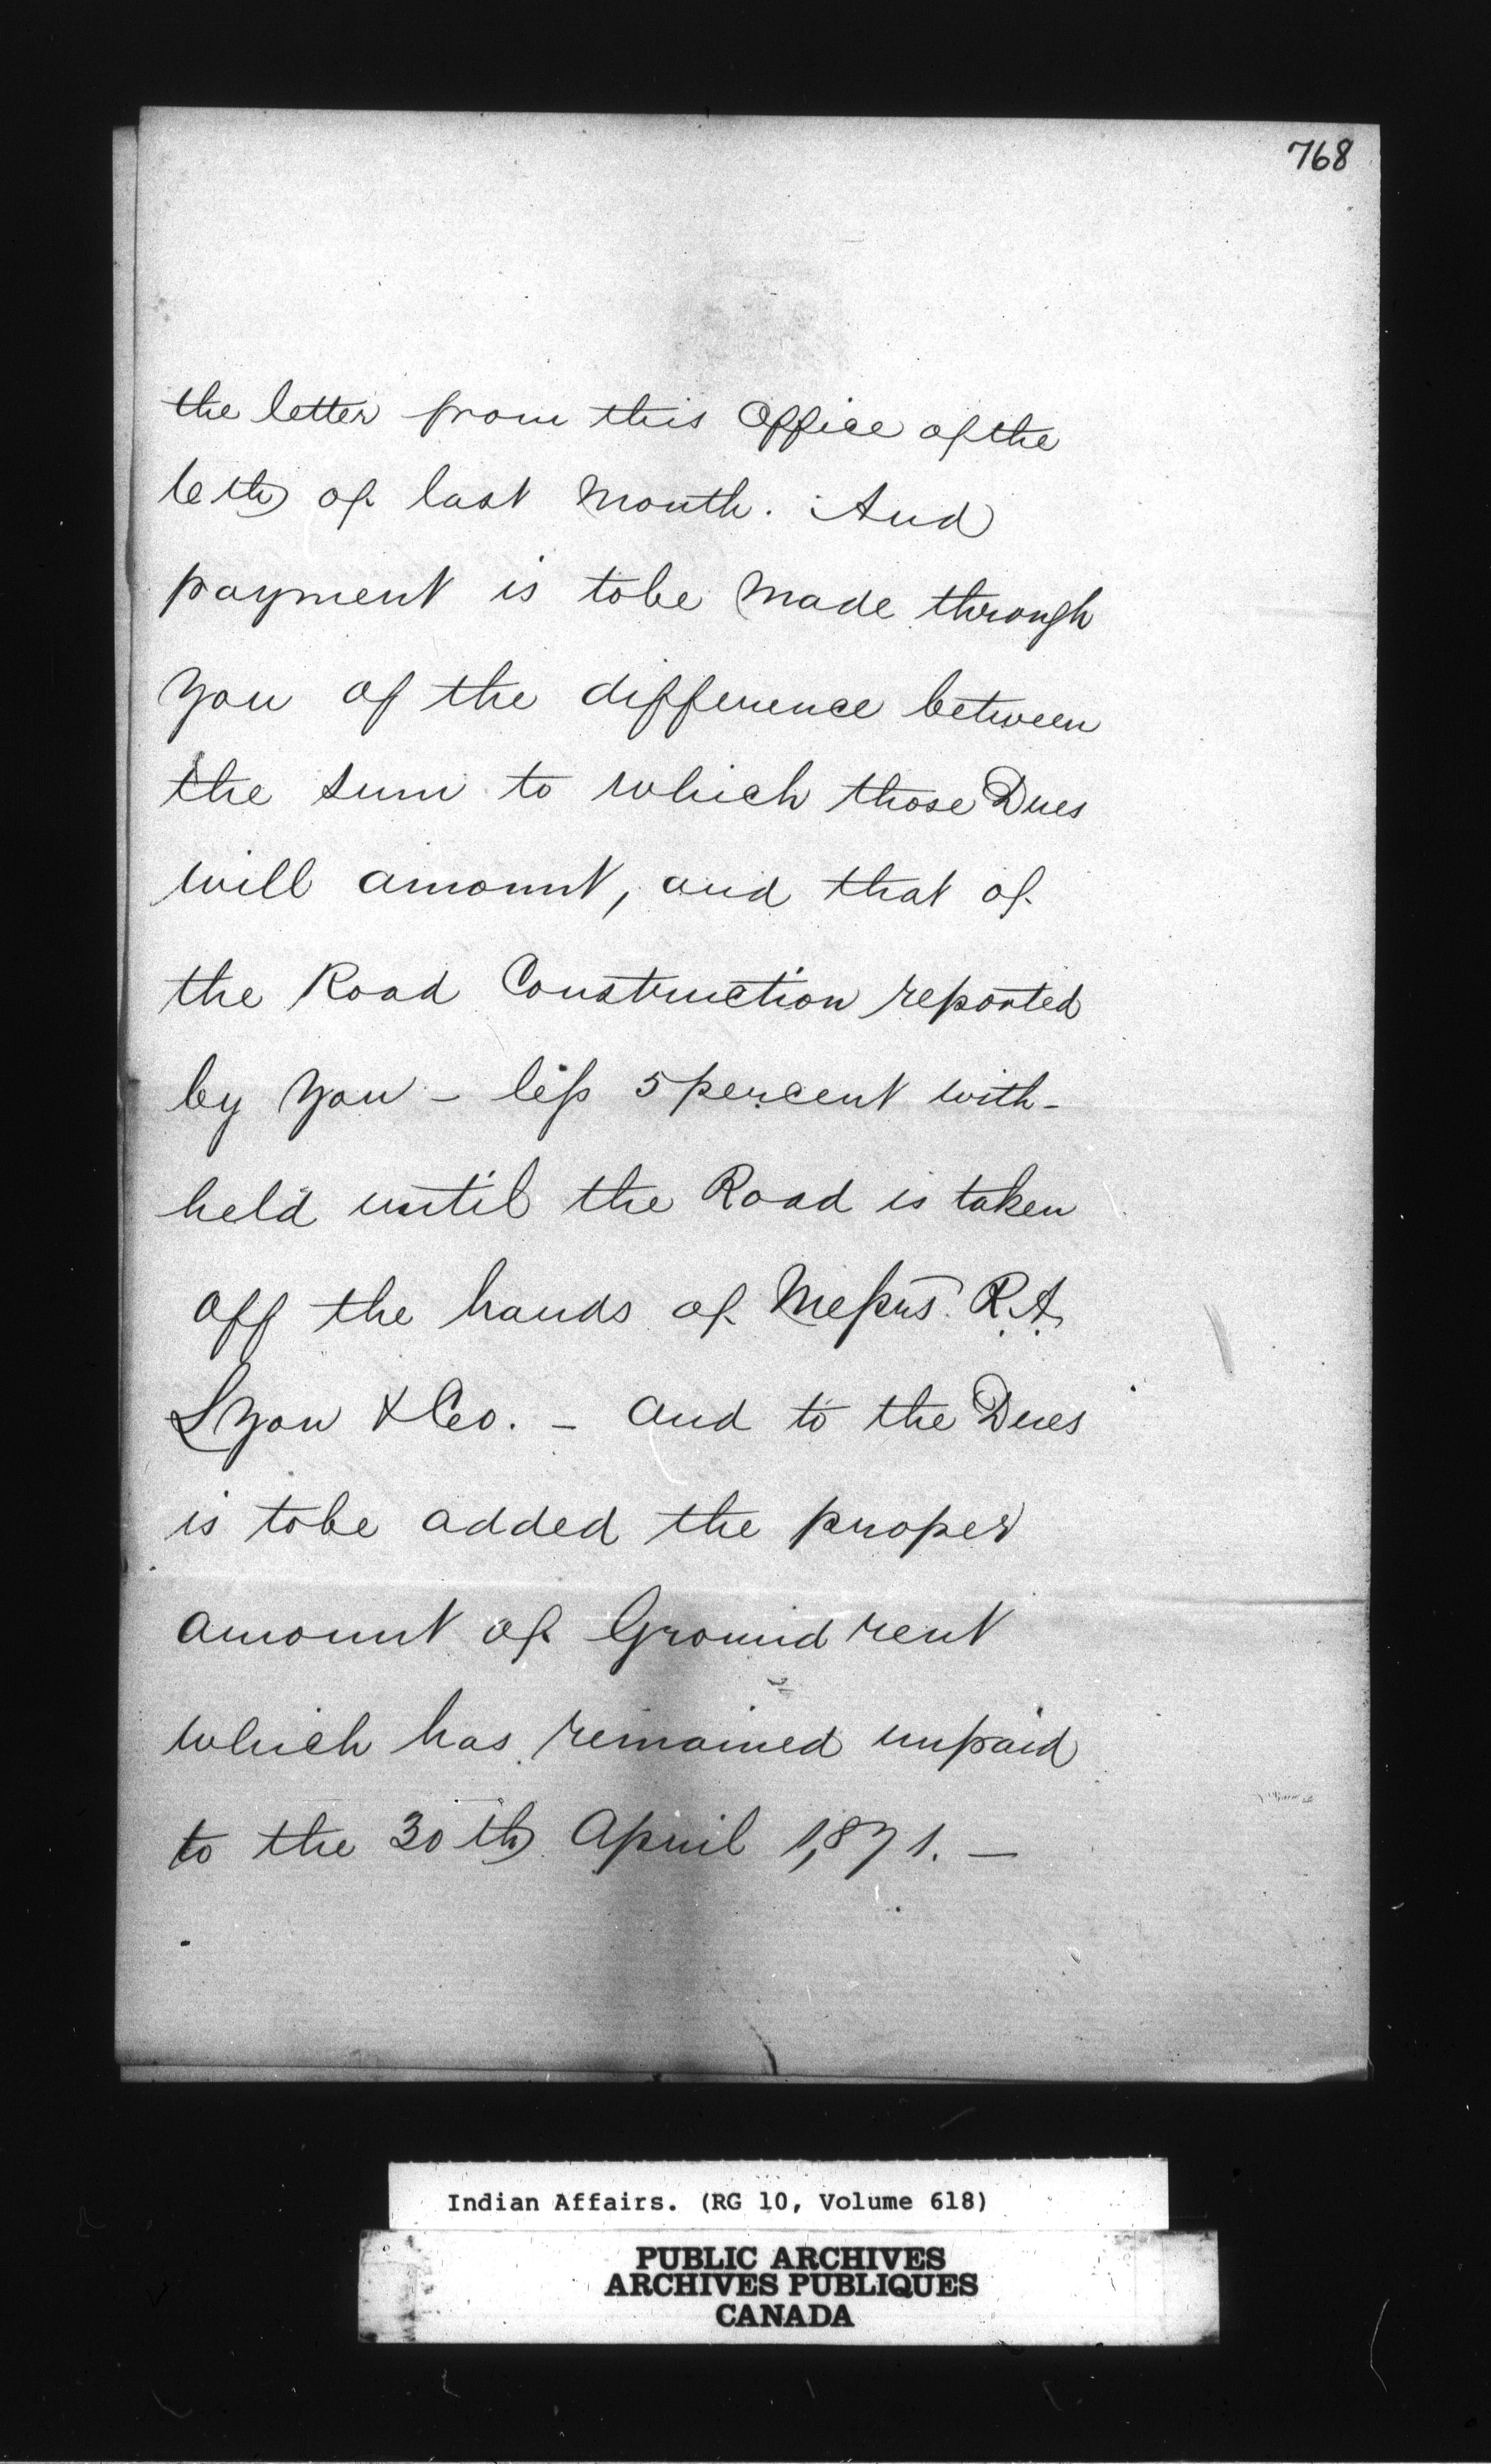 768
the letter from this Office of the
6th of last Month. And
payment is tobe made through
you of the difference between
the sum to which those Dues
will amount, and that of
the Road Construction reported
by you - less 5 percent with-
held until the Road is taken
off the hands of Messrs. R.A.
Lyon & Co. - and to the Dues
is tobe added the proper
amount of Ground rent
which has remained unpaid
to the 30th April 1,871. -
Indian Affairs. (RG 10, Volume 618)
PUBLIC ARCHIVES
ARCHIVES PUBLIQUES
CANADA